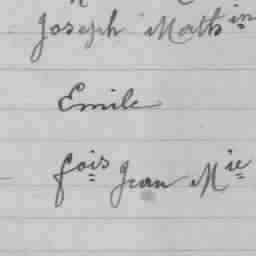 Joseph Math^in
Emile
fois Jean M^ie